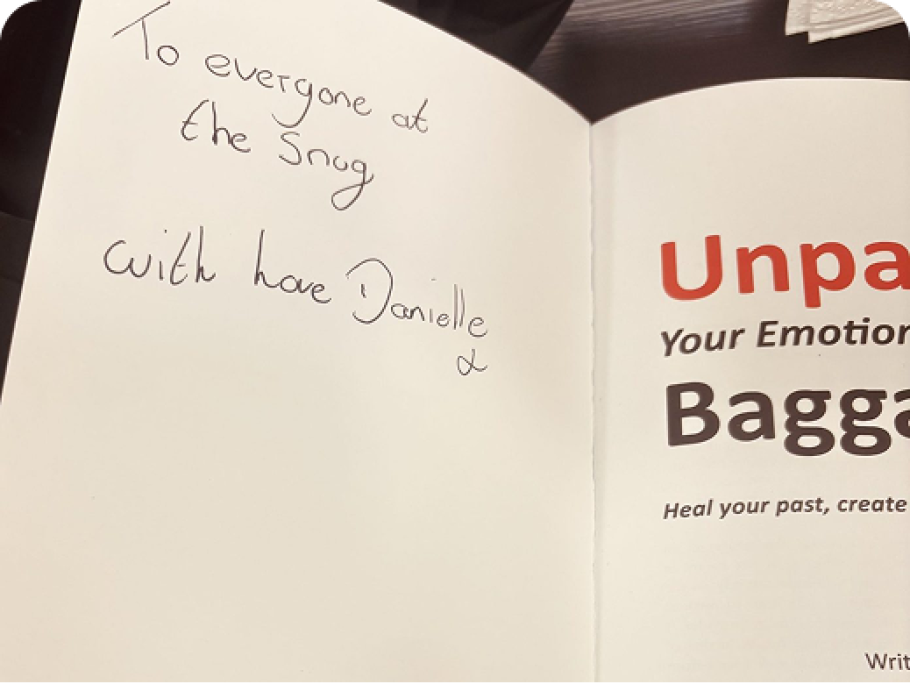 To everyone at
the Snug
with love Danielle
x
Unpa
Your Emotion
Bagga
Heal your past, create
Writ